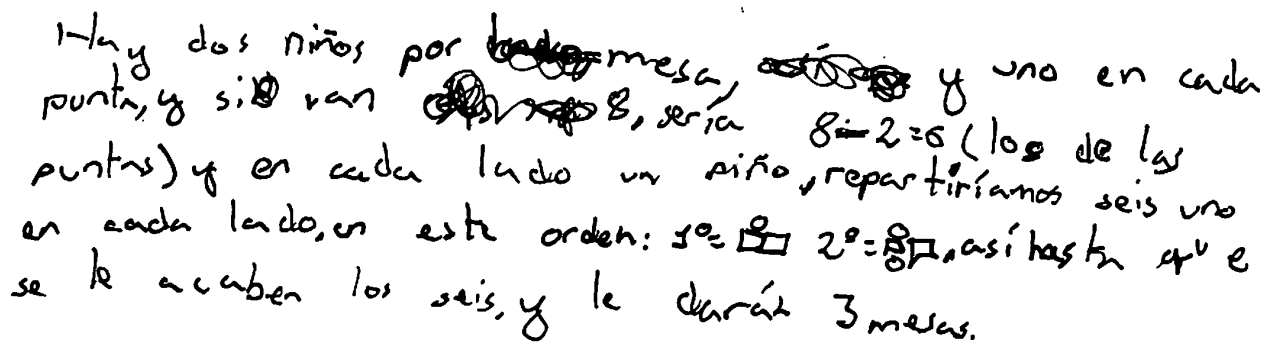 Hay dos niños por mesa, y uno en cada
punta, y si van 8, sería 8-2=6 (los de las
puntas) y en cada lado un niño, repartiríamos seis uno
en cada lado, en este orden: 1º= 2º= , así hasta que
se le acaben los seis, y le darán 3 mesas.